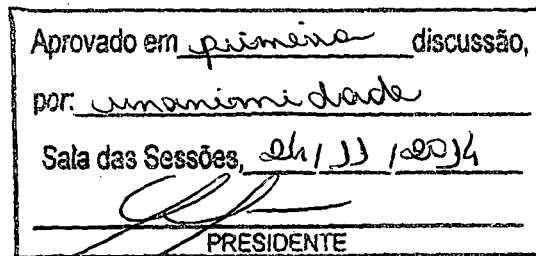 Aprovado em primeira discussão,
por: unanimidade
Sala das Sessões, 24/11/2014
PRESIDENTE